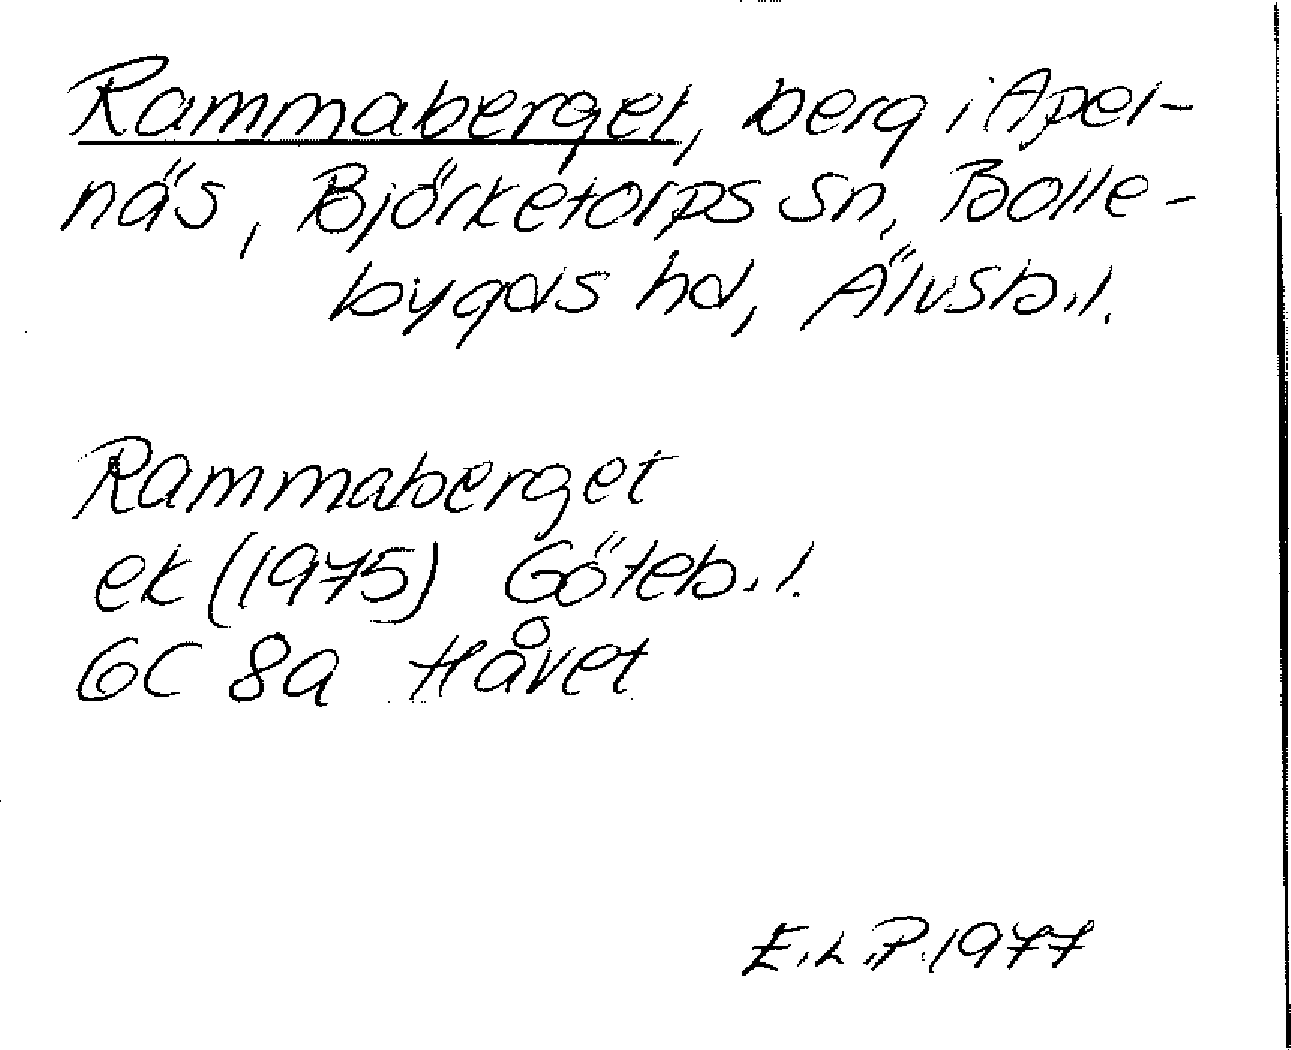 Rammaberget, berg i Apel-
näs, Björketorps sn, Bolle-
bygds hd, Älvsb.l.
Rammaberget
ek (1975) Göteb.l.
6C 8a Håvet
E.L.P. 1977